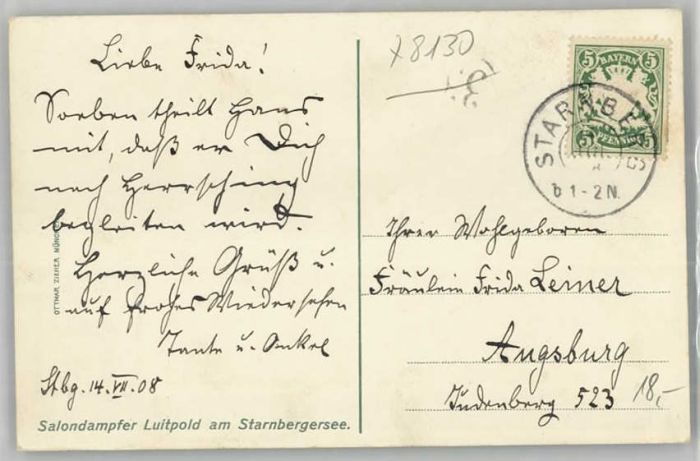 Liebe Frida!
Soeben theilt Hans
mit, daß er Dich
nach Herrsching
begleiten wird.
Herzliche Grüß u.
auf frohes Wiedersehen
Tante u. Onkel
Stbg. 14. VII. 08
Salondampfer Luitpold am Starnbergersee.
OTTMAR ZIEHER MÜNCHEN
x8130
5 BAYERN 5
5 PFENNIG 5
STARNBERG
b 1-2 N.
Ihrer Wohlgeboren
Fräulein Frida Leiner
Augsburg
Judenberg 523
18,-